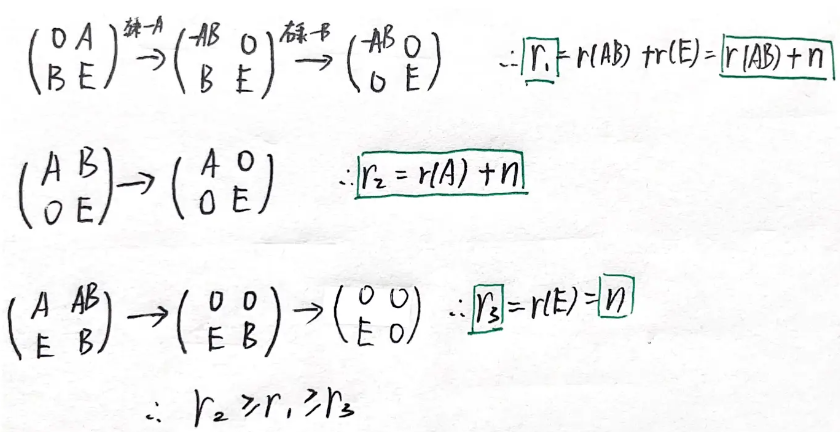 (0 A; B E) 左乘-A → (-AB 0; B E) 右乘-B → (-AB 0; 0 E) ∴ r₁ = r(AB) + r(E) = r(AB) + n
(A B; 0 E) → (A 0; 0 E) ∴ r₂ = r(A) + n
(A AB; E B) → (0 0; E B) → (0 0; E 0) ∴ r₃ = r(E) = n
∴ r₂ ≥ r₁ ≥ r₃